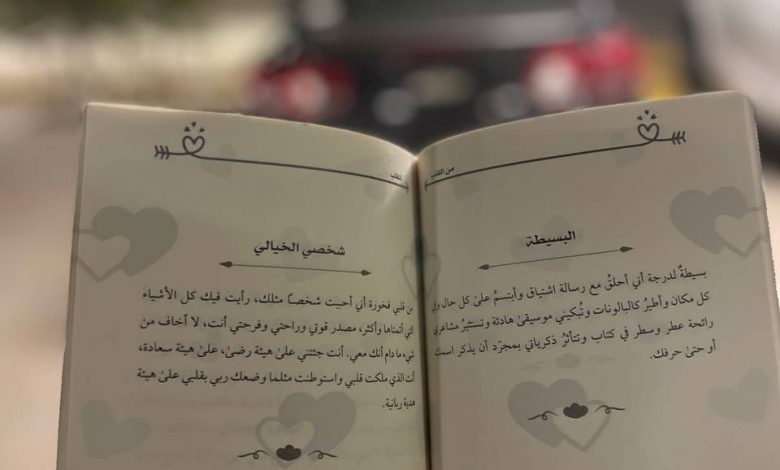 من القلب
البسيطة
بسيطةٌ لدرجة أني أحلقُ مع رسالة اشتياق وأبتسمُ علىٰ كل حال وفي
كل مكان وأطيرُ كالبالونات وتُبكيني موسيقىٰ هادئة وتستثيرُ مشاعري
رائحة عطر وسطر في كتاب وتتأثرُ ذكرياتي بمجرّد أن يذكر اسمك
أو حتىٰ حرفك.
للقلب
شخصي الخيالي
من قلبي فخورة أني أحببت شخصًا مثلك، رأيت فيك كل الأشياء
التي أتمناها وأكثر، مصدر قوتي وراحتي وفرحتي أنت، لا أخاف من
شيء ما دام أنك معي. أنت جئتني علىٰ هيئة رضىٰ، علىٰ هيئة سعادة،
أنت الذي ملكت قلبي واستوطنت مثلما وضعك ربي بقلبي علىٰ هيئة
هدية ربانية.